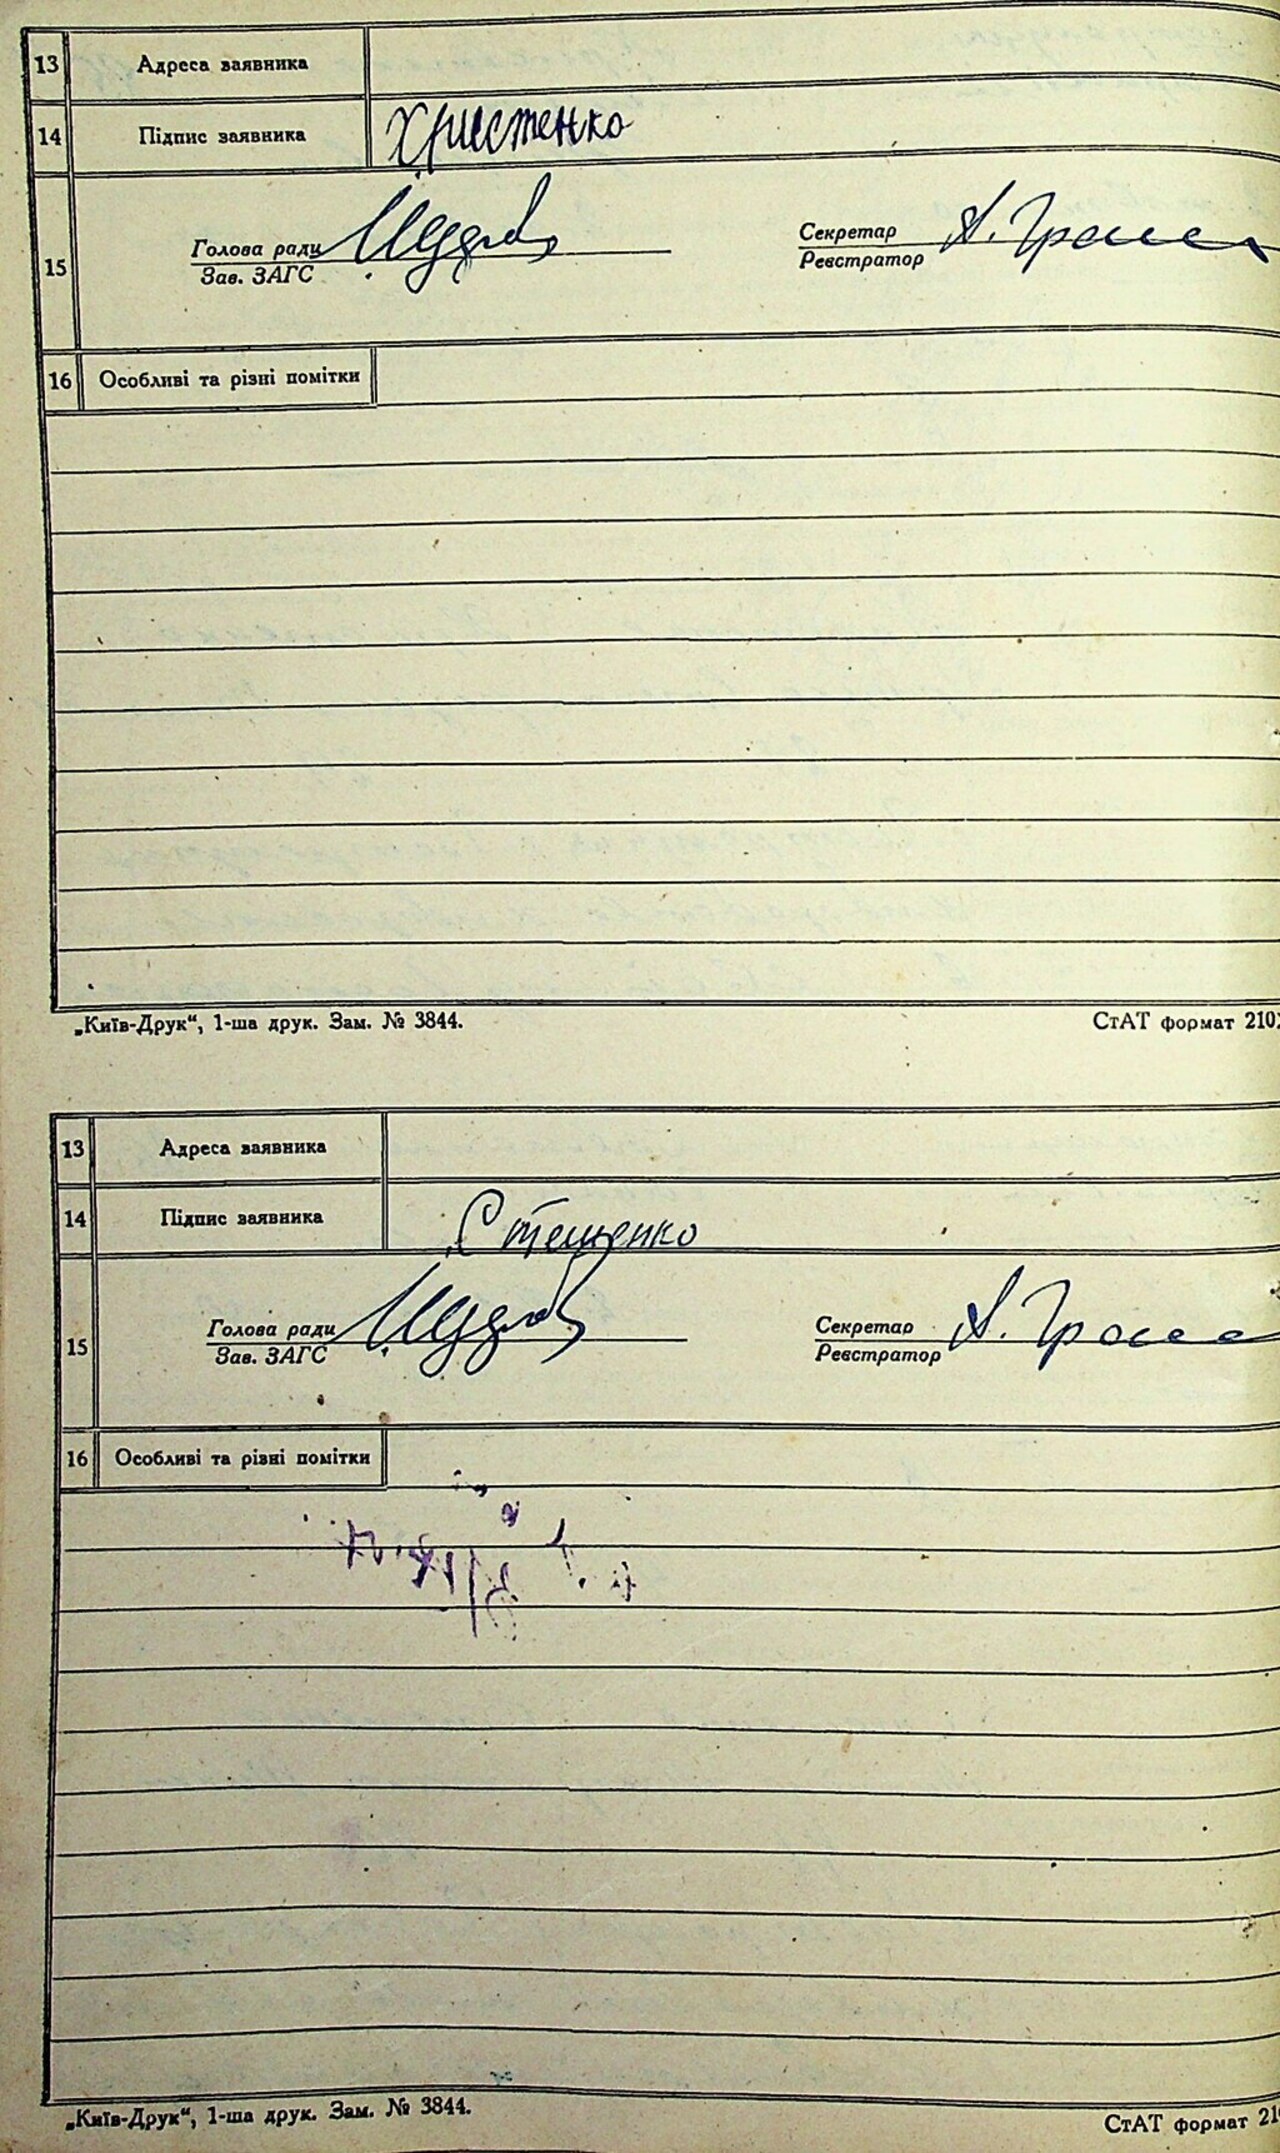 13 Адреса заявника
14 Підпис заявника Христенко
15 Голова ради Секретар
Зав. ЗАГС Реєстратор
16 Особливі та різні помітки
„Київ-Друк“, 1-ша друк. Зам. № 3844. СтАТ формат 210
13 Адреса заявника
14 Підпис заявника Стещенко
15 Голова ради Секретар
Зав. ЗАГС Реєстратор
16 Особливі та різні помітки
„Київ-Друк“, 1-ша друк. Зам. № 3844. СтАТ формат 21